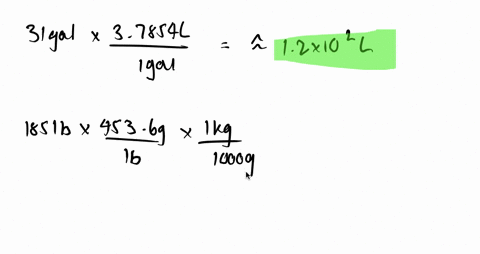 31gal × 3.7854L / 1gal = ≈ 1.2×10² L
185lb × 453.6g / lb × 1kg / 1000g